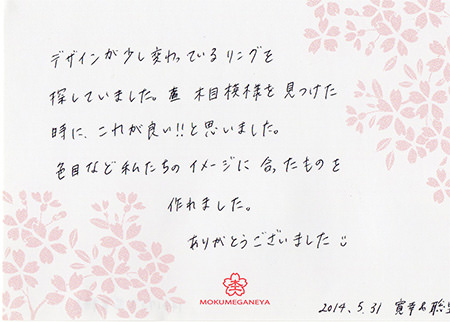 デザインが少し変わっているリングを
探していました。木目模様を見つけた
時に、これが良い!!と思いました。
色目など私たちのイメージに合ったものを
作れました。
ありがとうございました
MOKUMEGANEYA
2014.5.31